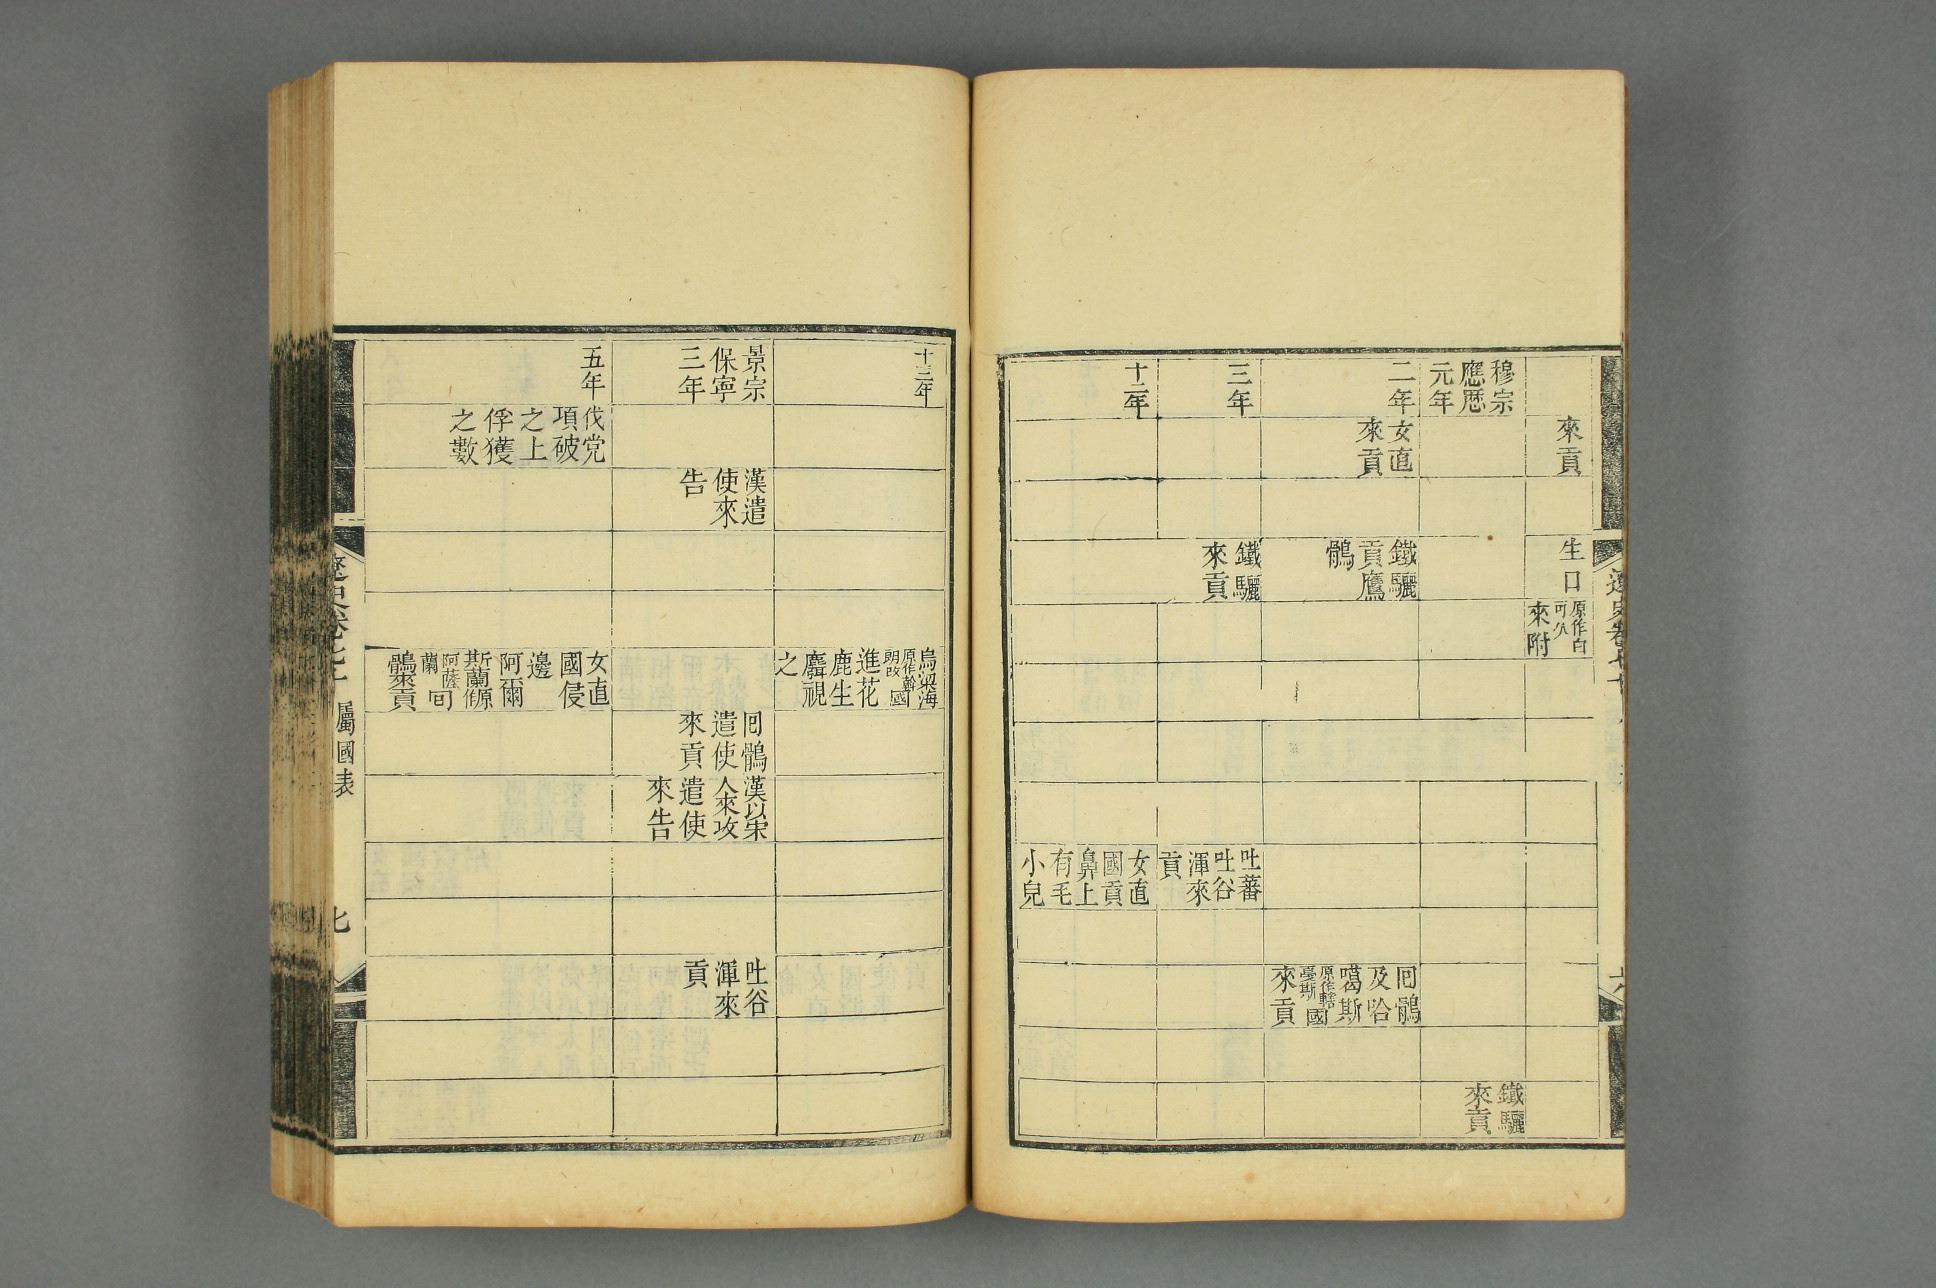 來貢
生口
原作白
可久
來附
穆宗
應曆
元年
鐵驪
來貢
二年
女直
來貢
鐵驪
貢鷹
鶻
回鶻
及哈
噶斯
原作轄
戞斯
國
來貢
三年
鐵驪
來貢
吐蕃
吐谷
渾來
貢
十二年
女直
國貢
鼻上
有毛
小兒
十三年
烏梁海
原作斡
朗改
國
進花
鹿生
麝視
之
景宗
保寧
三年
漢遣
使來
告
回鶻
遣使
來貢
漢以宋
人來攻
遣使
來告
吐谷
渾來
貢
五年
伐党
項破
之上
俘獲
之數
女直
國侵
邊
阿爾
斯蘭原
作
阿薩
蘭
回
鶻來貢
屬國表
七